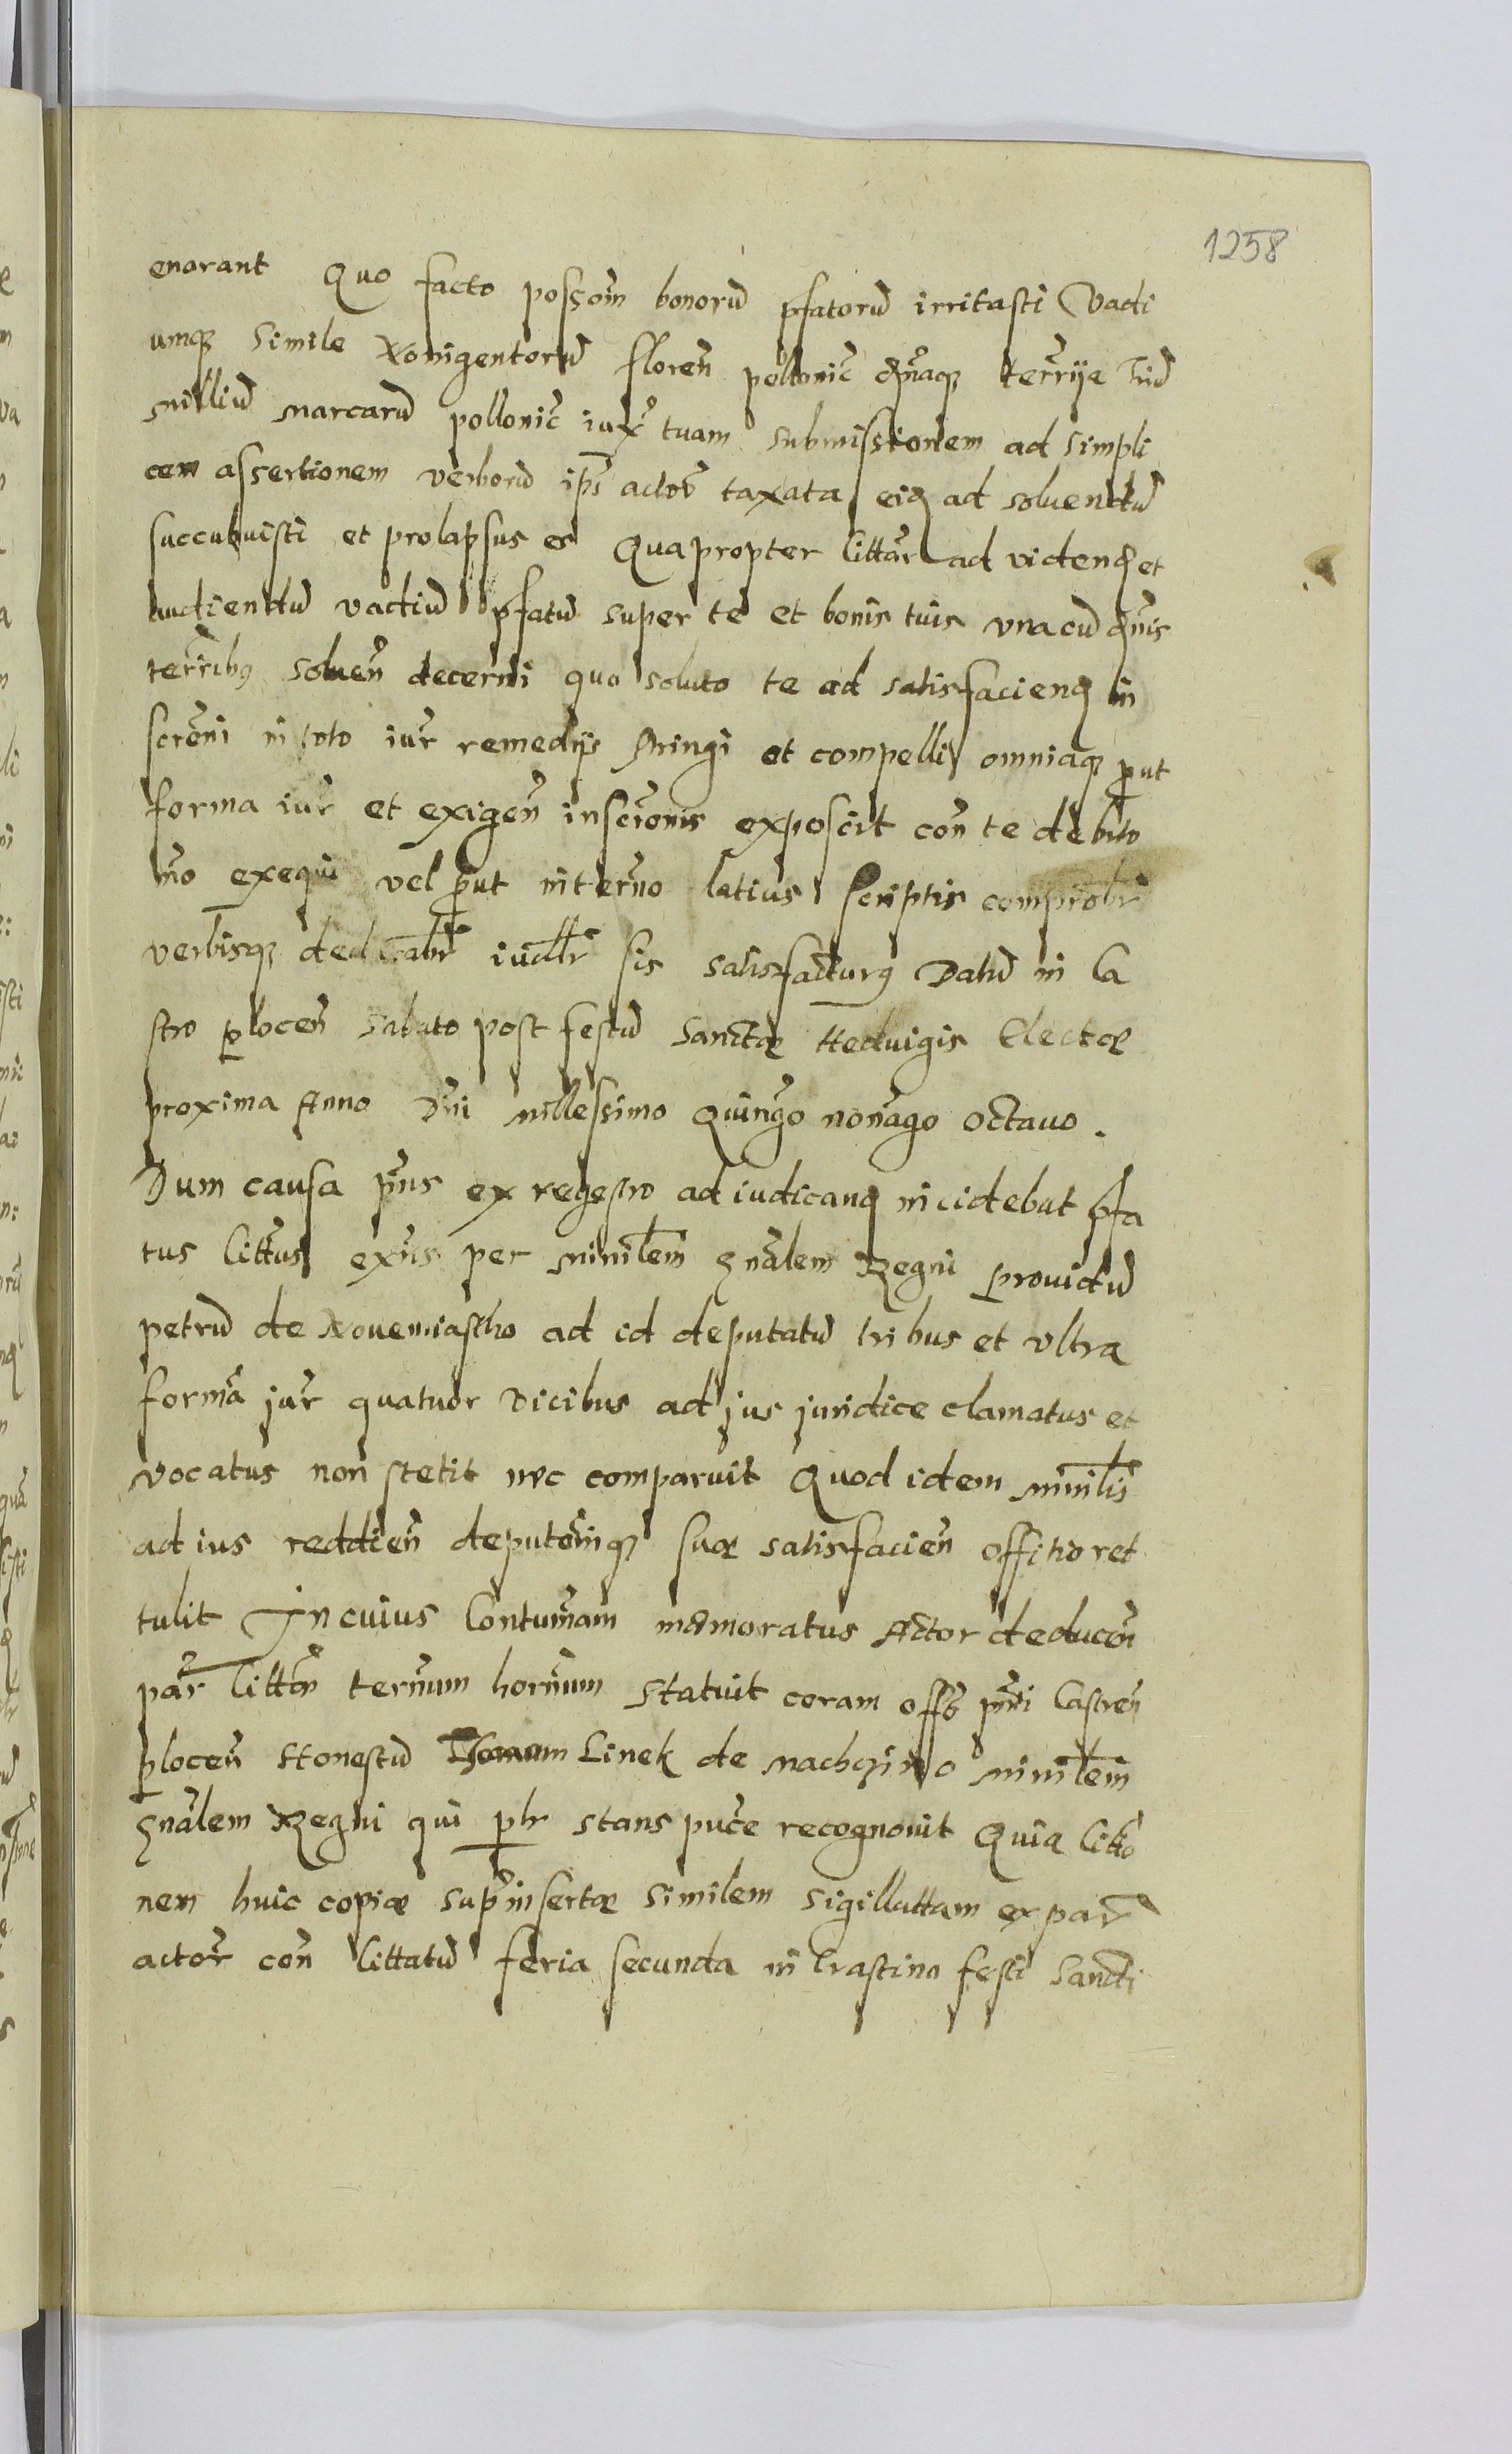 1258
enorant Quo facto possom bonorū pfatorū irritasti Vadi
umq simile Nonigentorū floren pollonic dnaq terrije triū
milliū marcarū pollonic iux tuam submissionem ad simpli
cem assertionem verborū ips actor taxata eiq ad soluendū
succubuisti et prolapsus es Quapropter littar ad videnq et
audiendū vadiū pfatū super te et bonis tuis vna cū dnis
terribq soluen decerni quo soluto te ad satisfacienq in
scrōni in toto iur remedijs stringi et compelli omniaq put
forma iur et exigen inscronis exposcit con te debito
mō exequi vel put in termo latius scriptis comprobr
verbisq deducabr iudlr sis satisfacturq Datū in Ca
stro plocen sabato post festū Sanctæ Heduigis Electæ
proxima Anno Dni millessimo Quingo nonago octauo.
Dum causa pns ex regestro ad iudicanq incidebat pfa
tus littus exns per minilem gnalem Regni prouidū
petrū de Nouemiastho ad id deputatū tribus et vltra
formā jur quatuor vicibus ad jus juridice clamatus et
vocatus non stetit nec comparuit Quod idem minilis
ad ius reddien deputoniq suæ satisfacien offitio ret
tulit In cuius Contumam memoratus Actor deducen
par litton termum hornum statuit coram offo pnti Castren
plocen Honestū Thomam Linek de nachczino minilem
gnalem Regni qui plr stans puce recognouit Quia litto
nem huic copiæ supinsertæ similem sigillattam ex par
actor con littatū feria secunda in Crastino festi Sancti